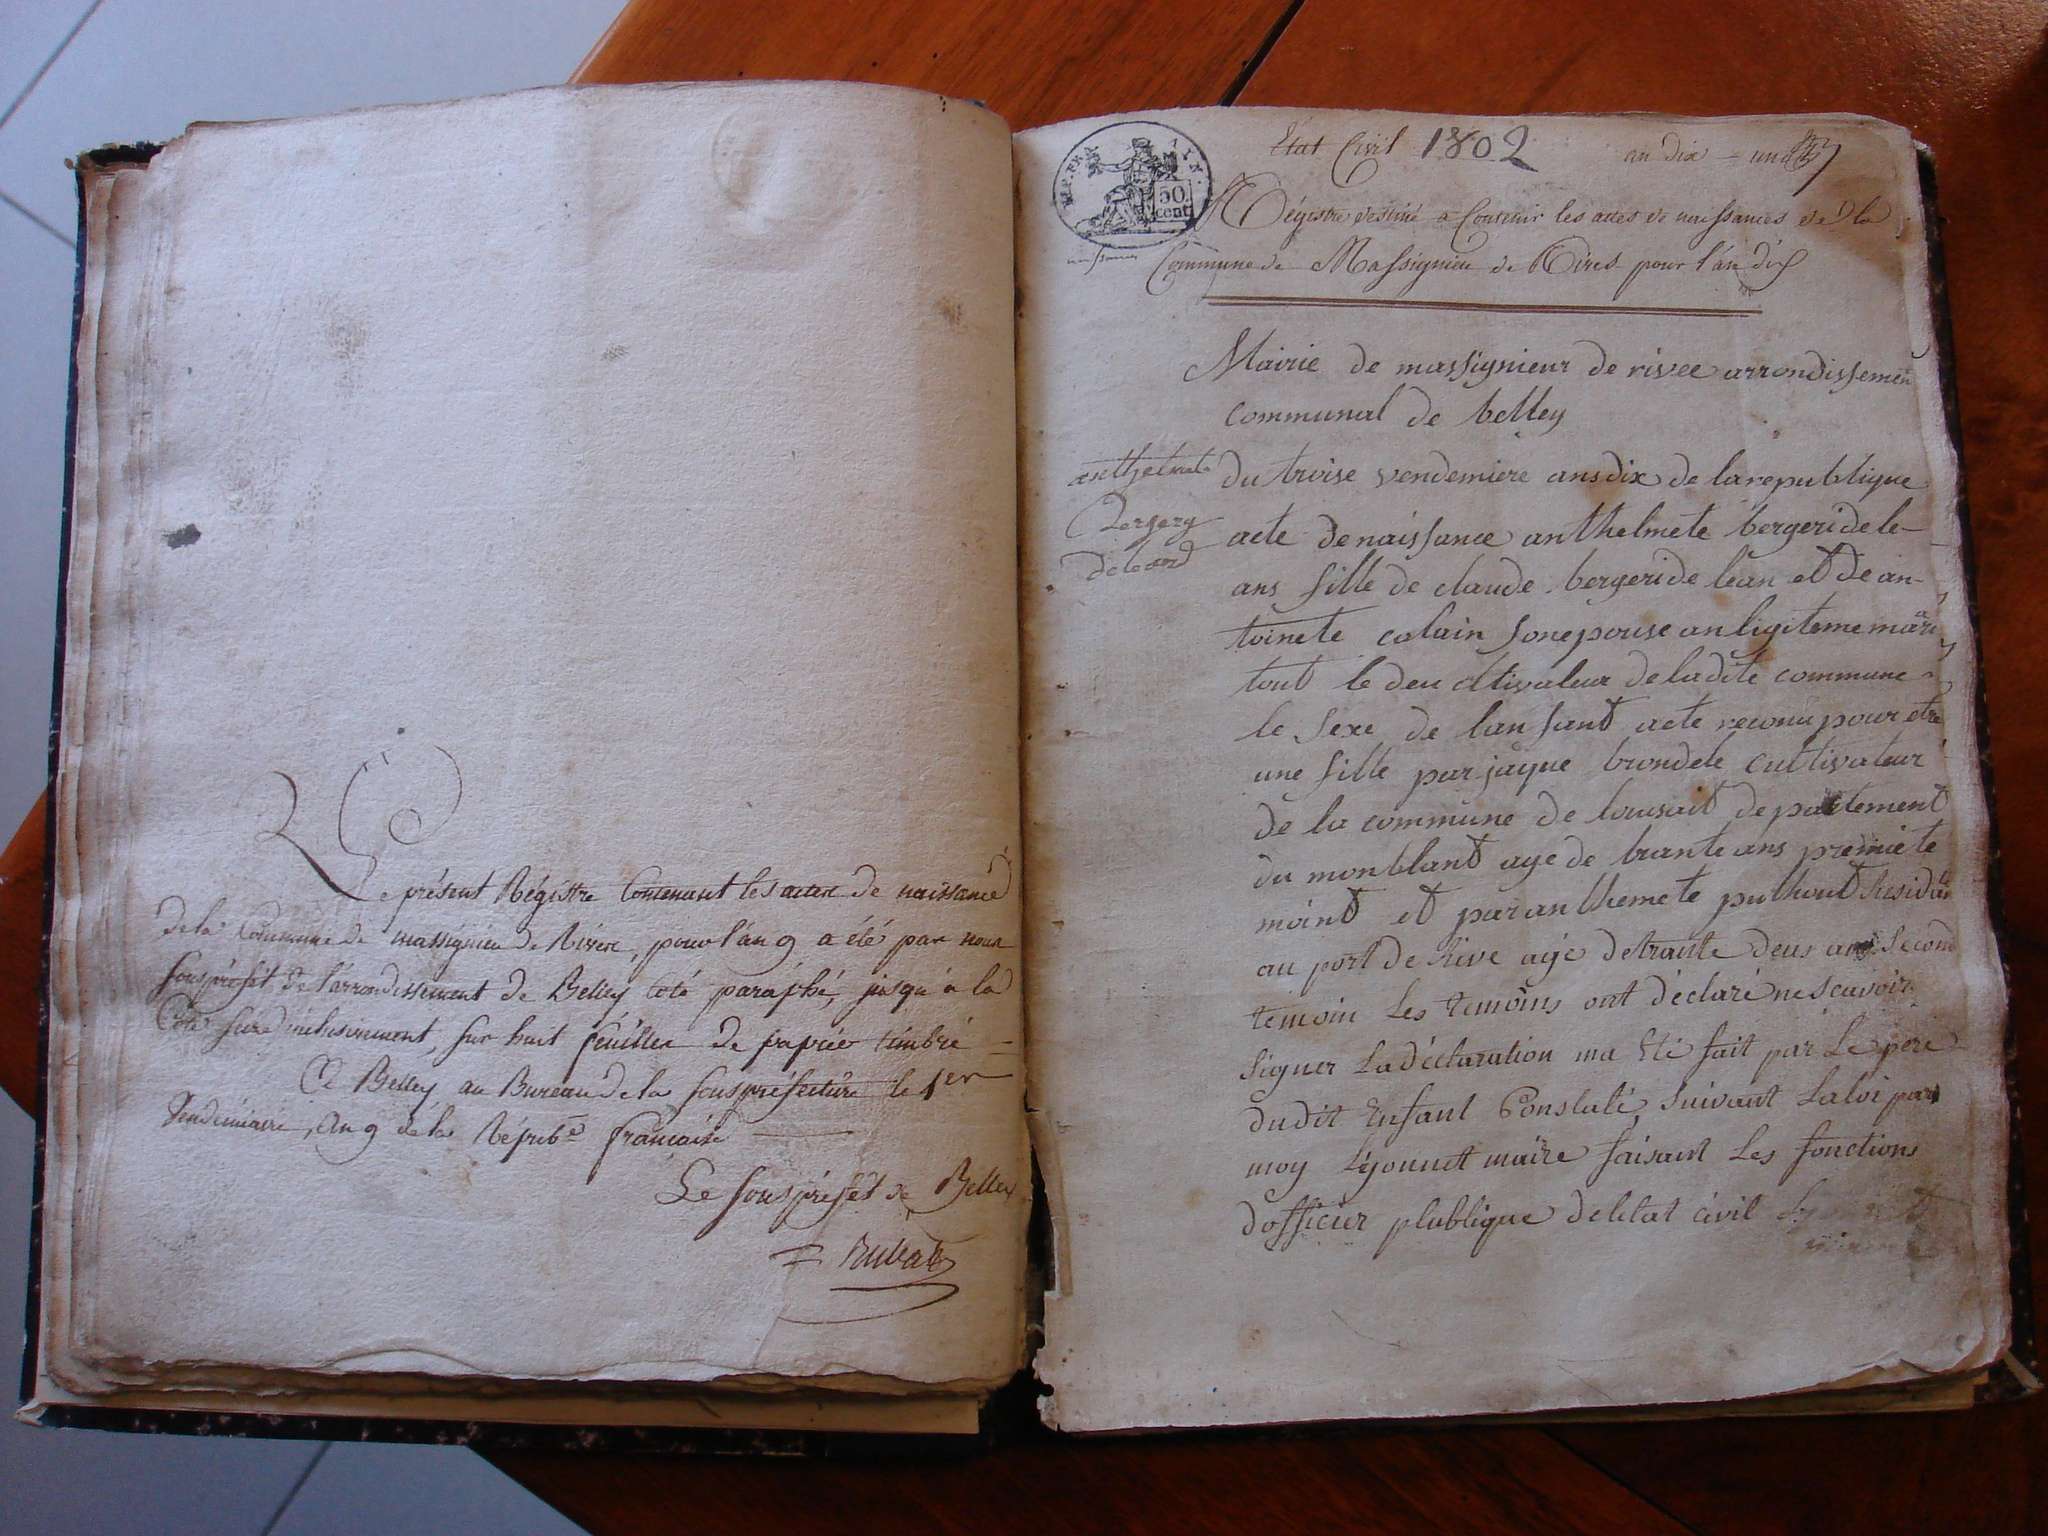 Le présent Régistre Contenant les actes de naissance
de la Commune de massignieu de Rivere, pour l'an 9 a été par nous
souspréfet de l'arrondissement de Belley coté paraphé, jusqu'à la
Cote seize inclusivement, sur huit feuilles de papier timbré
A Belley, au Bureau de la souspréfecture le 1er
Vendémiaire, An 9 de la Répube française
Le souspréfet de Belley
Rubat
REP. FRA.
50
cent
naissances
Etat Civil 1802 an dix = un
Régistre destiné a Contenir les actes de naissances de la
Commune de Massignieu de Rives pour l'an dix
Mairie de massignieur de rivee arrondissemen
communal de belley
anthelmete
Bergery
deleand
du troise vendemiere ans dix de la republique
acte de naissance anthelmete bergeri de le-
ans fille de claude bergeri de lean et de an-
toinete colain son epouse an ligiteme mari
tout le deu cltivateur de la dite commune
le sexe de lanfant acte reconu pour etre
une fille par jaque brondele cultivateur
de la commune de lousait departement
du monblant age de trante ans premie te
moint et par anthemete puthout Residan
au port de Rive age de trante deus ans second
temoin Les temoins ont déclaré ne scavoir
signer La déclaration ma Eté fait par Le pere
dudit Enfant Constaté suivant La loi par
moy Lyonnet maire faisant Les fonctions
dofficier plublique de letat civil Lyonnet